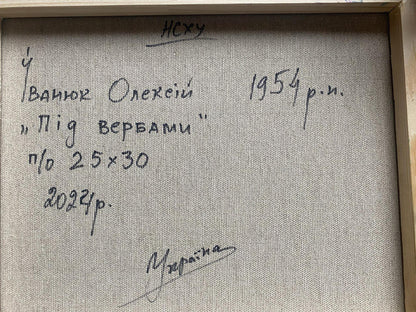 НСХУ
Іванюк Олексій 1954 р.н.
„Під вербами"
п/о 25×30
2022р.
Україна